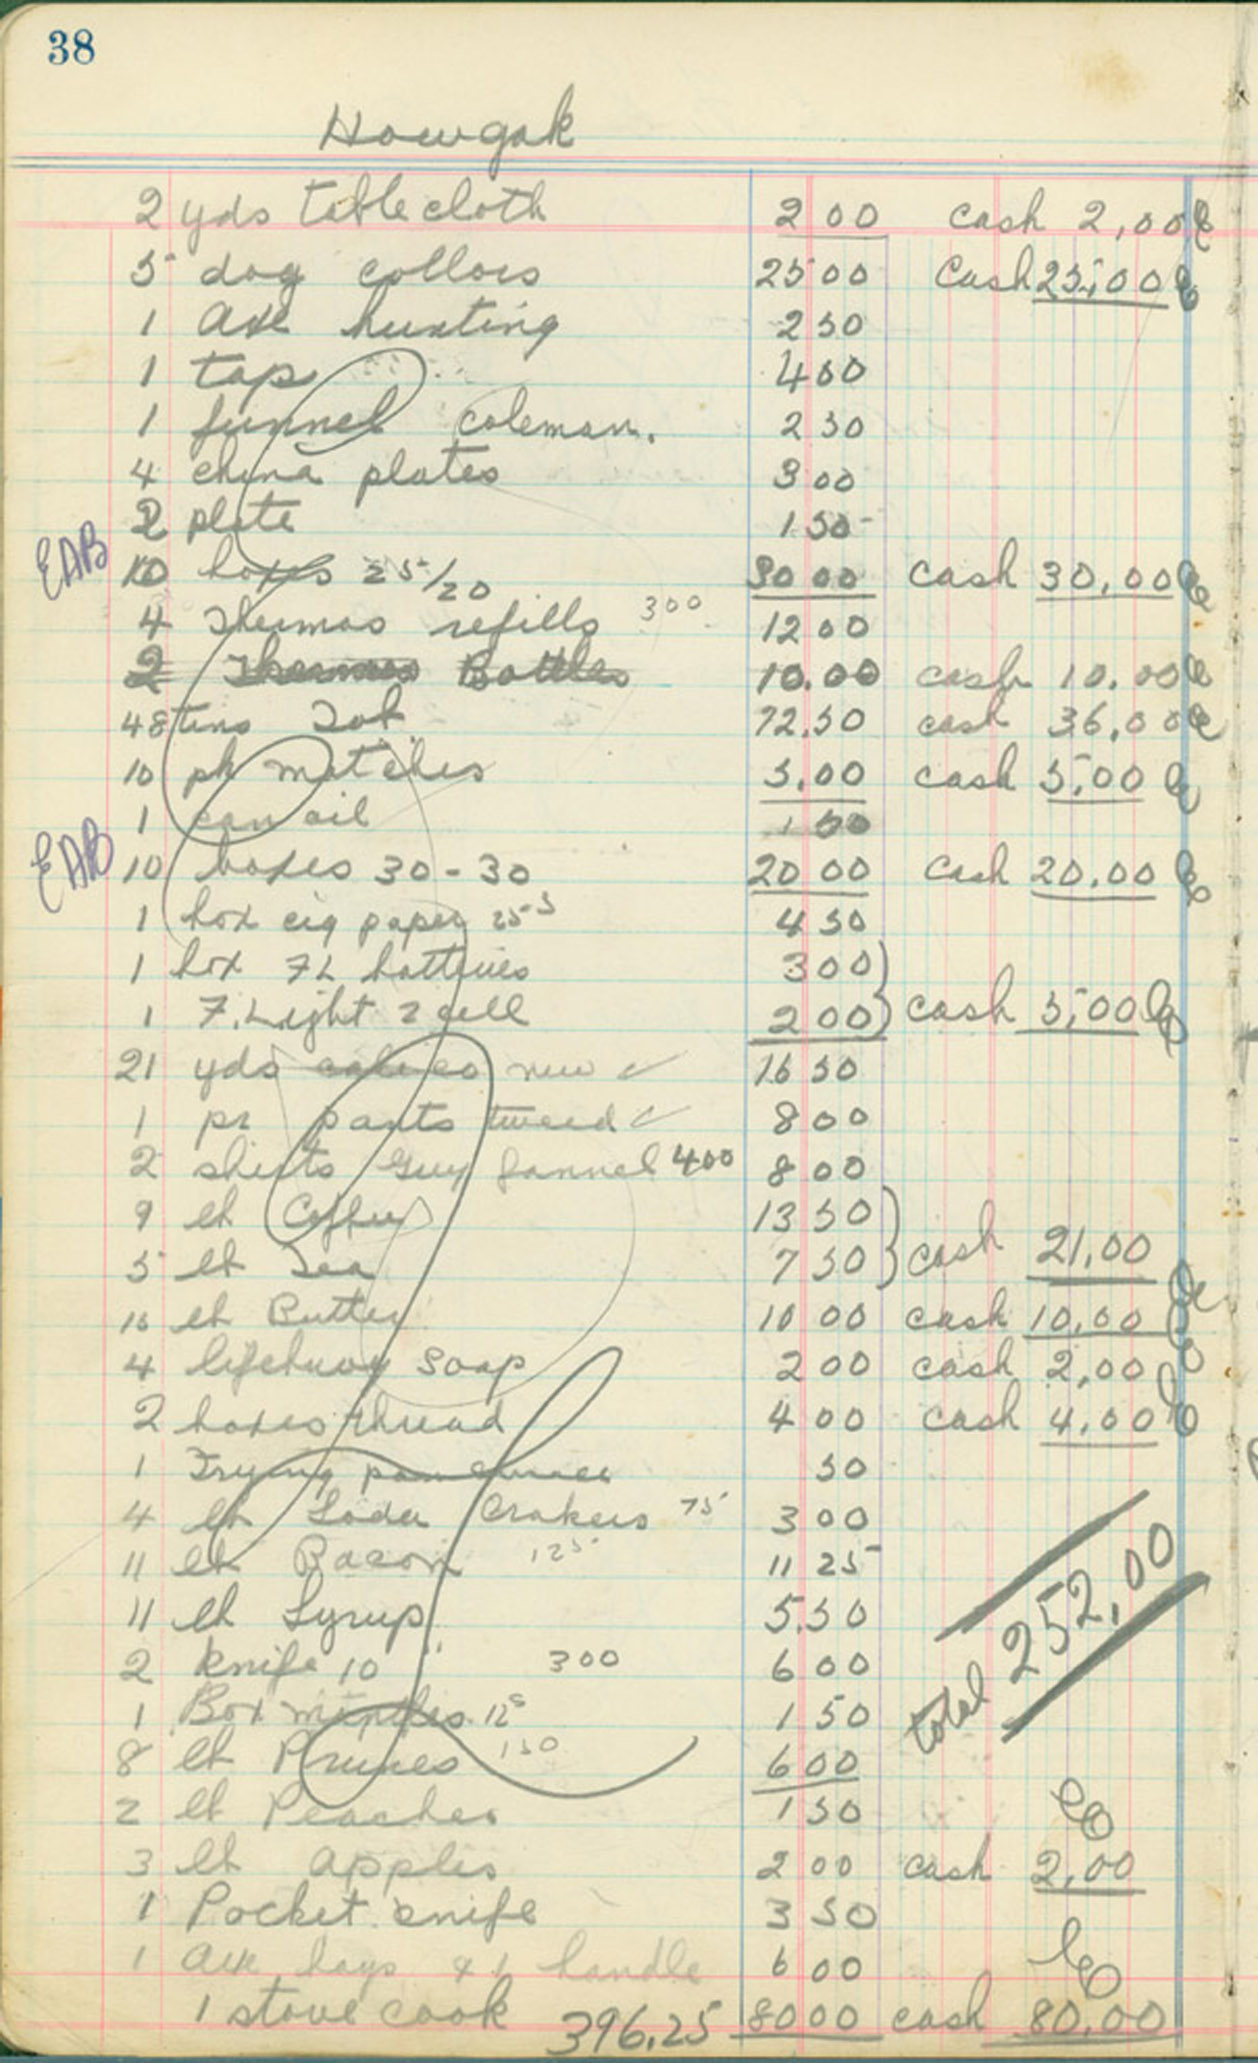 38
Howgak
2 yds table cloth 2 00 cash 2,00
5 dog collors 25 00 Cash 25,00
1 Axe hunting 2 50
1 tap 4 00
1 funnel coleman. 2 50
4 china plates 3 00
2 plate 1 50
EAB 10 boxes 25/20 30 00 cash 30,00
4 Thermos refills 300 12 00
2 Thermos Bottles 10.00 cash 10.00
48 tins Tob 72.50 cash 36,00
10 pk matches 5.00 cash 5,00
1 can oil 1 50
EAB 10 boxes 30-30 20 00 cash 20,00
1 box cig paper 25 4 50
1 box FL batteries 3 00
1 F. Light 2 cell 2 00 cash 5,00
21 yds calico new ✓ 16 50
1 pr pants tweed ✓ 8 00
2 shirts Grey fannel 400 8 00
9 lb Coffee 13 50
5 lb Tea 7 50 cash 21,00
10 lb Butter 10 00 cash 10,00
4 lifebuoy soap 2 00 cash 2,00
2 boxes thread 4 00 cash 4,00
1 Frying pan 50
4 lb Soda Crakers 75 3 00
11 lb Bacon 125 11 25
11 lb Syrup 5.50
2 knife 10" 300 6 00
1 Box mantles 12 1 50
total 252,00
8 lb Prunes 150 6 00
2 lb Peaches 1 50
3 lb apples 2 00 cash 2,00
1 Pocket knife 3 50
1 axe & 1 handle 6 00
1 stove cook 396.25 80 00 cash 80,00